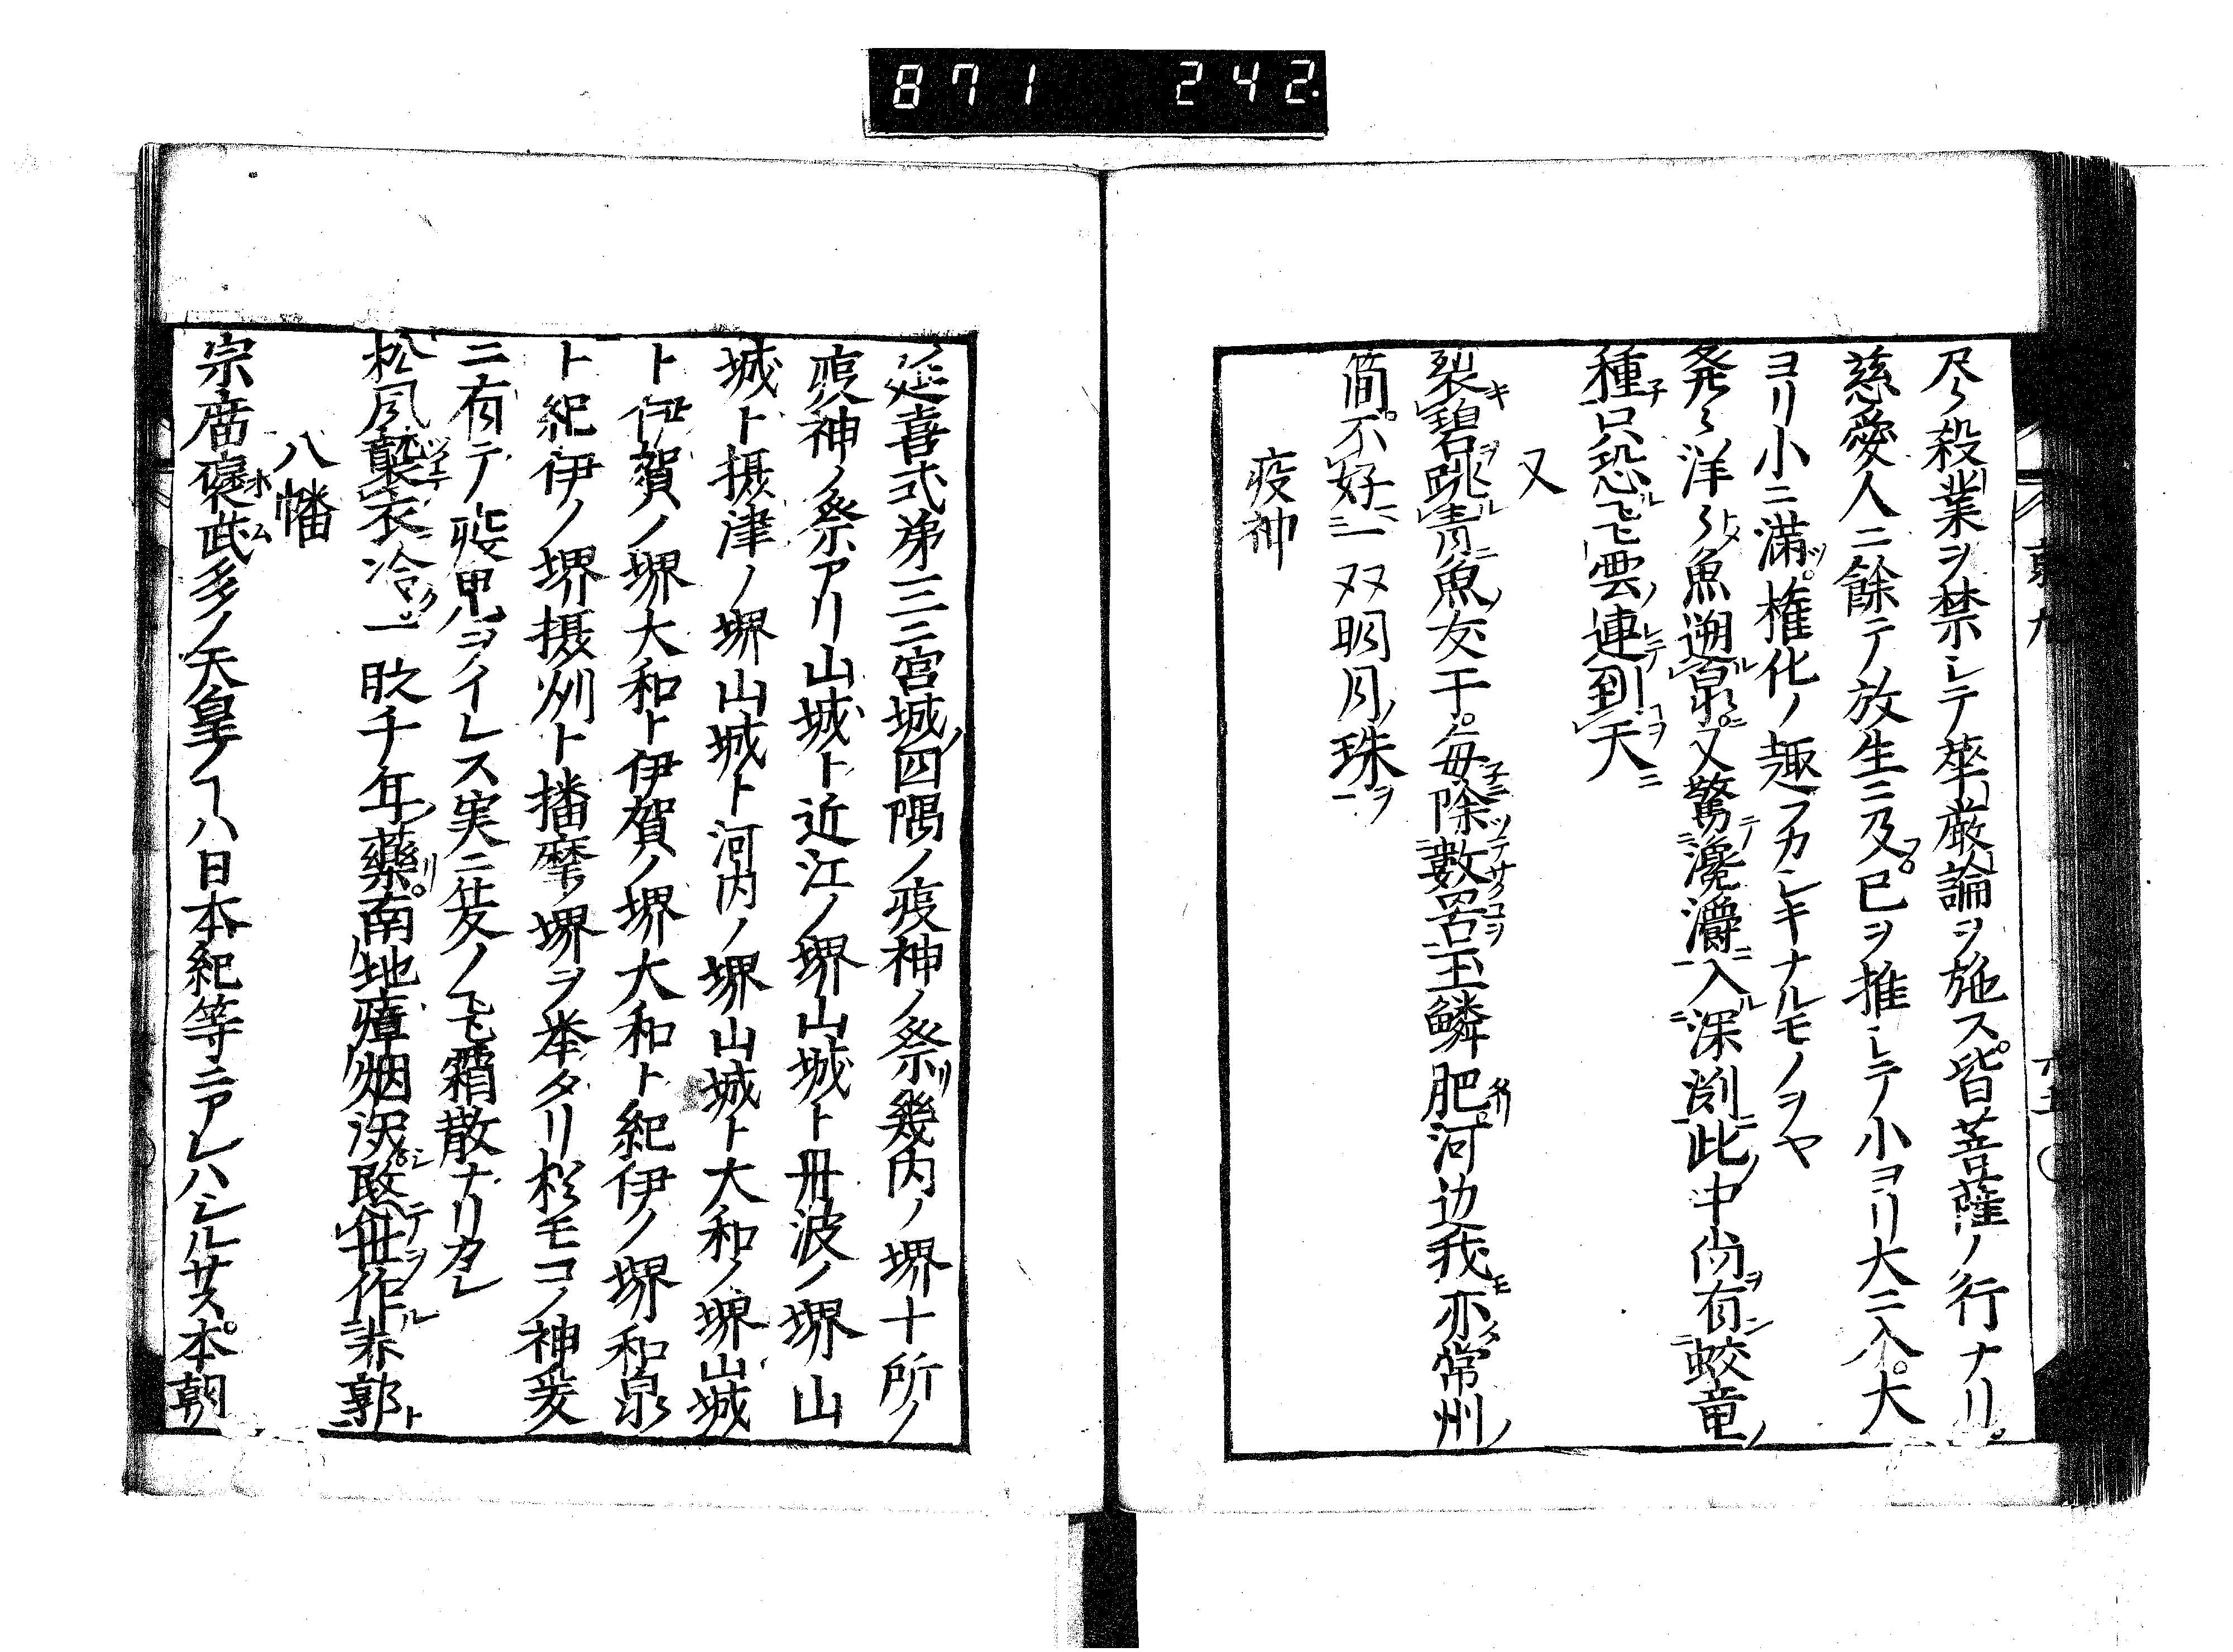 871 242.
尽〻殺業ヲ禁シテ華厳論ヲ施ス皆菩薩ノ行ナリ
慈愛人ニ餘テ放生ニ及フ已ヲ推シテ小ヨリ大ニ入大
ヨリ小ニ満ツ権化ノ趣フカシキナルモノヲヤ
発〻洋〻魚遡泉又驚瀺灂入深渕此中尚有蛟竜
種只恐飛雲連到天
又
裂碧跳青魚友干毎除數罟玉鱗肥河边我亦常州
簡不好一双明月珠
疫神
延喜式第三ニ宮城四隅ノ疫神ノ祭リ幾内ノ堺十所ノ
疫神ノ祭アリ山城ト近江ノ堺山城ト丹波ノ堺山
城ト摂津ノ堺山城ト河内ノ堺山城ト大和ノ堺山城
ト伊賀ノ堺大和ト伊賀ノ堺大和ト紀伊ノ堺和泉
ト紀伊ノ堺摂州ト播摩ノ堺ヲ挙タリ松モコノ神爰
ニ有テ疫鬼ヲイレス実ニ炎ノ飛霜散ナリカシ
松風襲衣冷一時千年藥南地瘴烟沢愍世作郭
八幡
宗廟褒武多ノ天皇ノコハ日本紀等ニアレハシルサス本朝